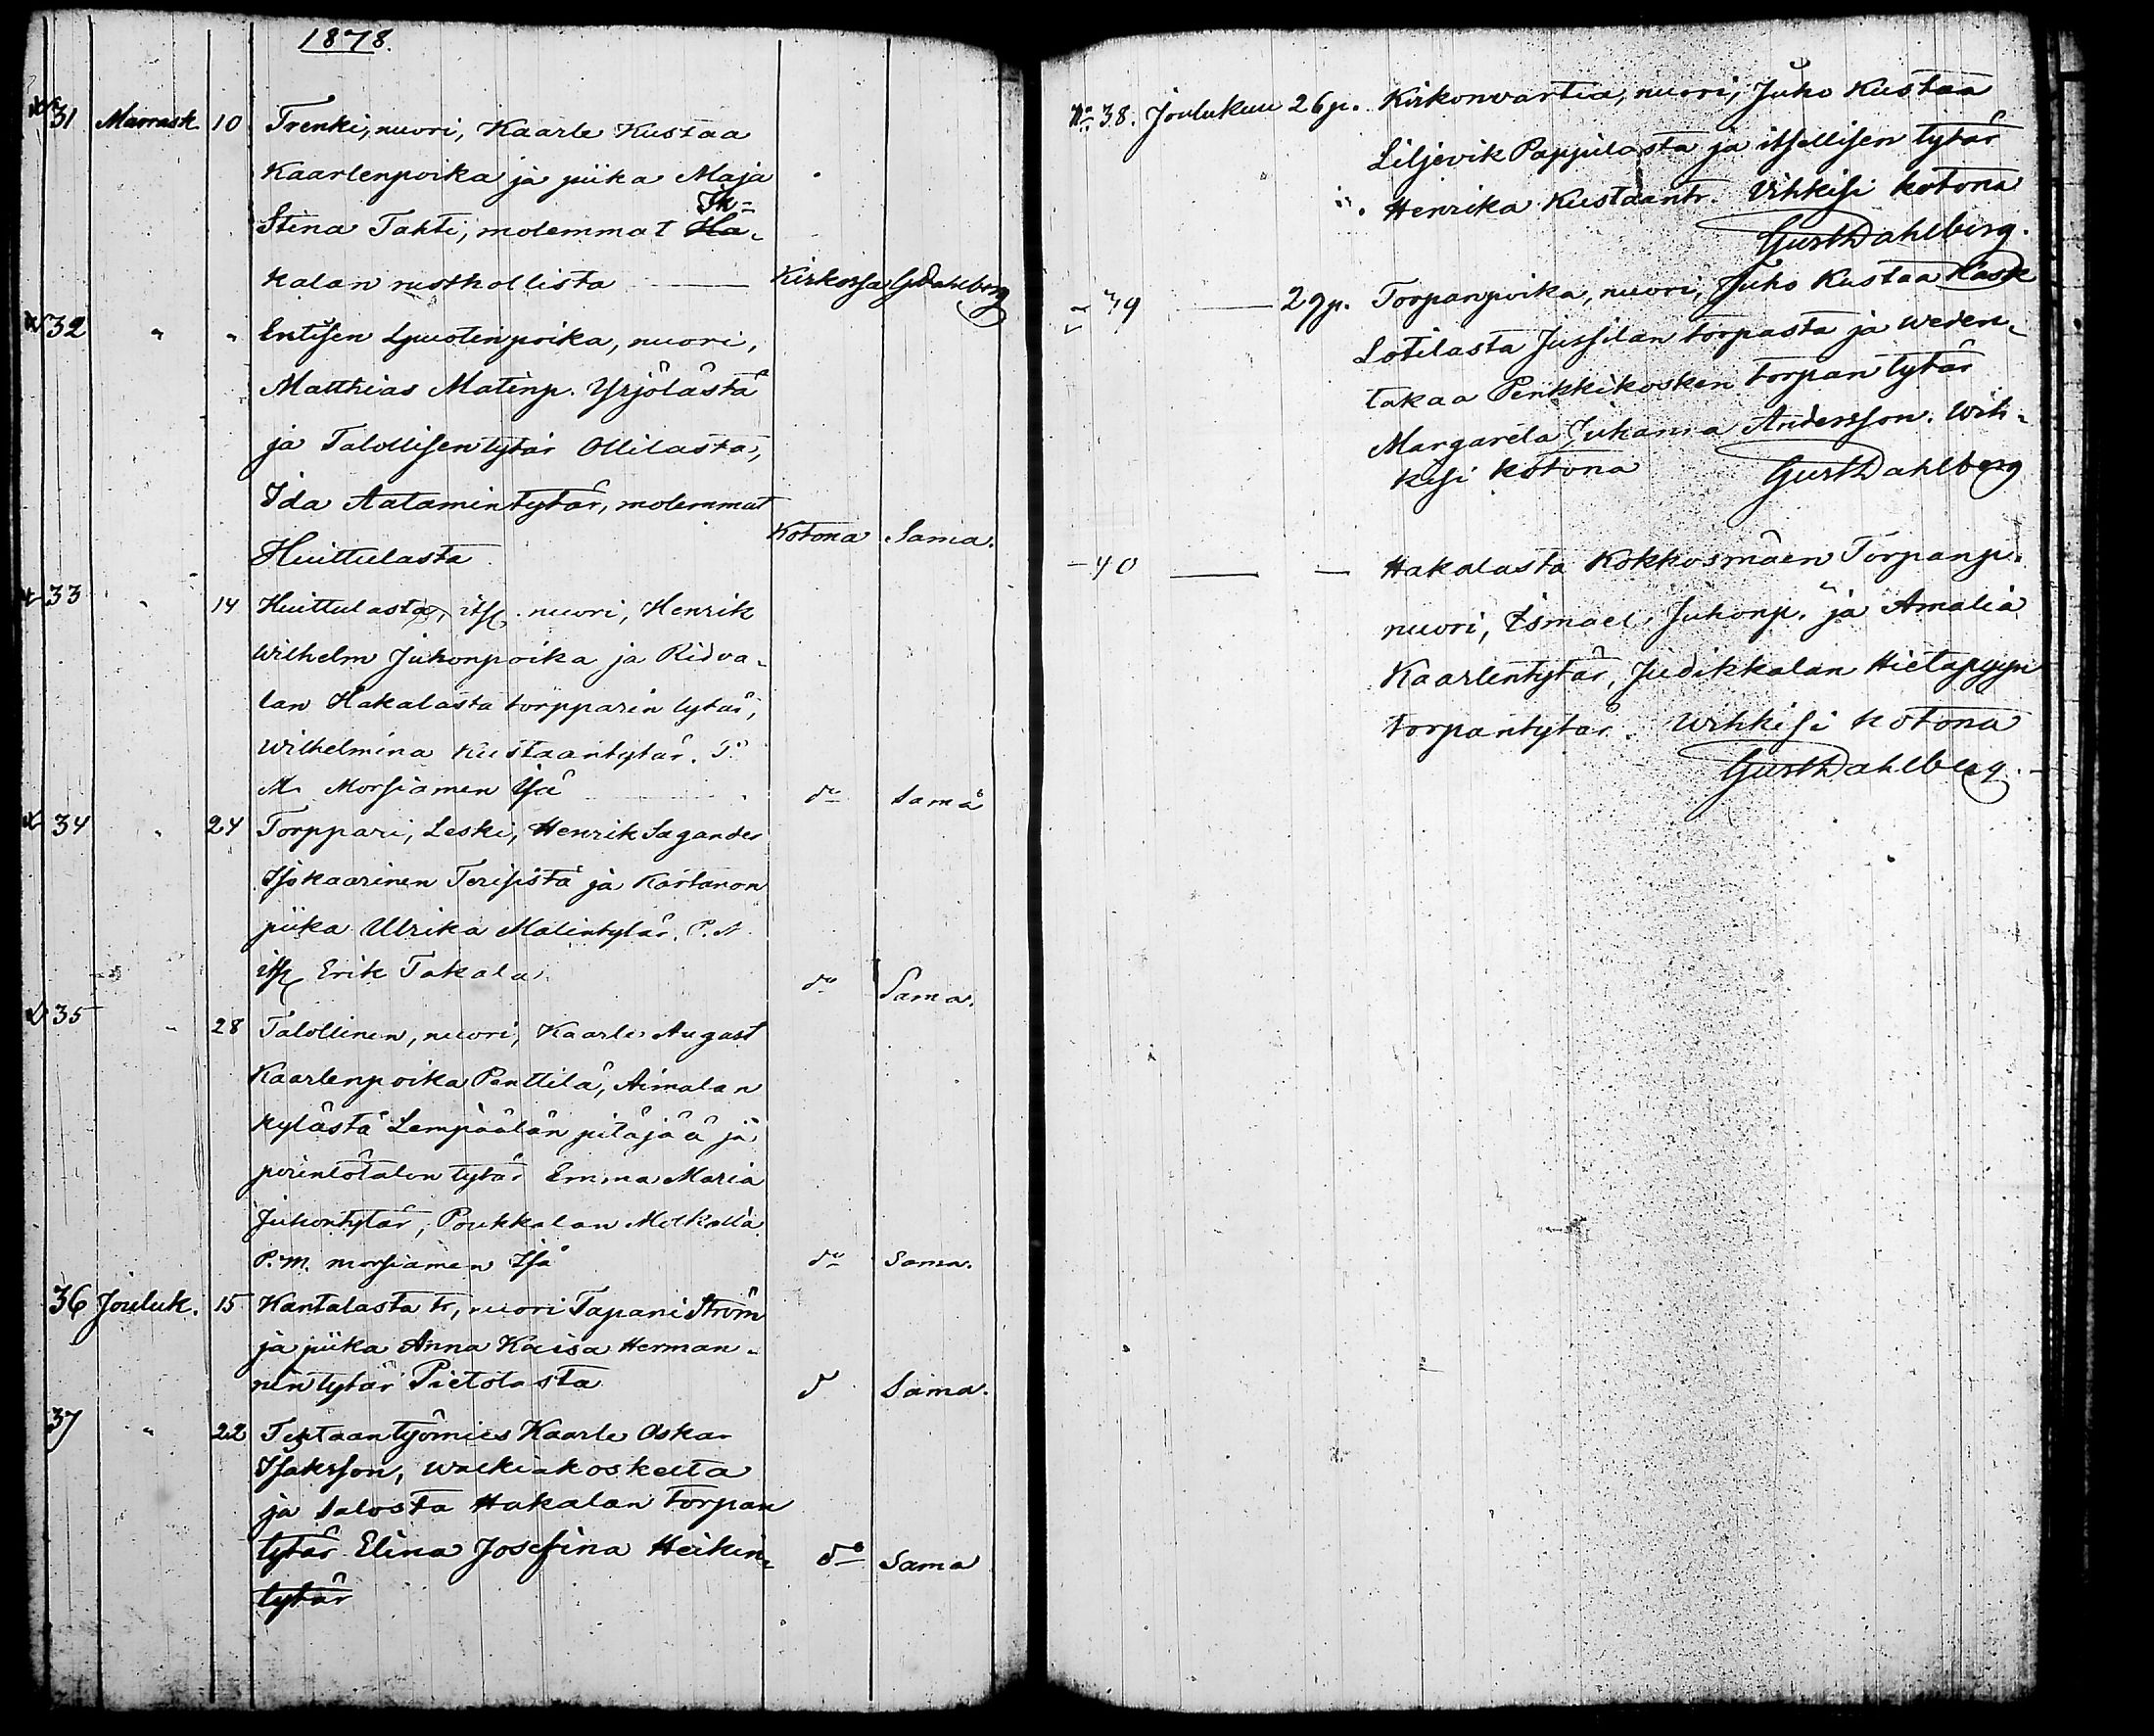 1878.
31 Marrask. 10 Trenki, nuori, Kaarle Kustaa
Kaarlenpoika ja piika Maja
Stina Tahti, molemmat Ha-
kalan rusthollista Kirkossa G Dahlberg
32 " " Entisen Lpuotinpoika, nuori,
Matthias Matinp. Yrjölästä
ja Talollisen tytär Ollilasta,
Ida Aatamintytär, molemmat
Huittulasta Kotona Sama.
33 " 14 Huittulasta, its. nuori, Henrik
Wilhelm Juhonpoika ja Ridva-
lan Hakalasta torpparin tytär,
Wilhelmina Kustaantytär. P.
M. Morsiamen Isä do Sama
34 " 24 Torppari, Leski, Henrik Sagander
Isokaarinen Terisistä ja Kartanon
piika Ulrika Matintytär. P. M.
its. Erik Takala do Sama.
35 " 28 Talollinen, nuori, Kaarle August
Kaarlenpoika Penttilä, Aimalan
kylästä Lempäälän pitäjää ja
perintötalon tytär Emma Maria
Juhontytär, Poukkalan
P. M. morsiamen Isä do Sama.
36 Jouluk. 15 Kantalasta tr, nuori Tapani Ström
ja piika Anna Kaisa Herman-
nintytär Pietolasta do Sama.
37 " 22 Tehtaantyömies Kaarle Oskar
Isaksson, Walkiakoskelta
ja Salosta Hakalan torpan
tytär Elina Josefina Heikin-
tytär do Sama
No 38. Joulukuu 26 p. Kirkonvartia, nuori, Juho Kustaa
Liljevik Pappilasta ja itsellisen tytär
Henrika Kustaantr. Vihkisi kotona
Gust Dahlberg.
39 29 p. Torpanpoika, nuori, Juho Kustaa Kask
Lotilasta Jussilan torpasta ja Weden-
takaa Penkkikosken torpan tytär
Margareta Juhanna Andersson. Wih-
kisi kotona Gust Dahlberg
40 Hakalasta Kokkosmäen Torpanp.
nuori, Ismael Juhonp. ja Amalia
Kaarlentytär, Judikkalan Hietapyyn
torpantytär. Wihkisi kotona
Gust Dahlberg.